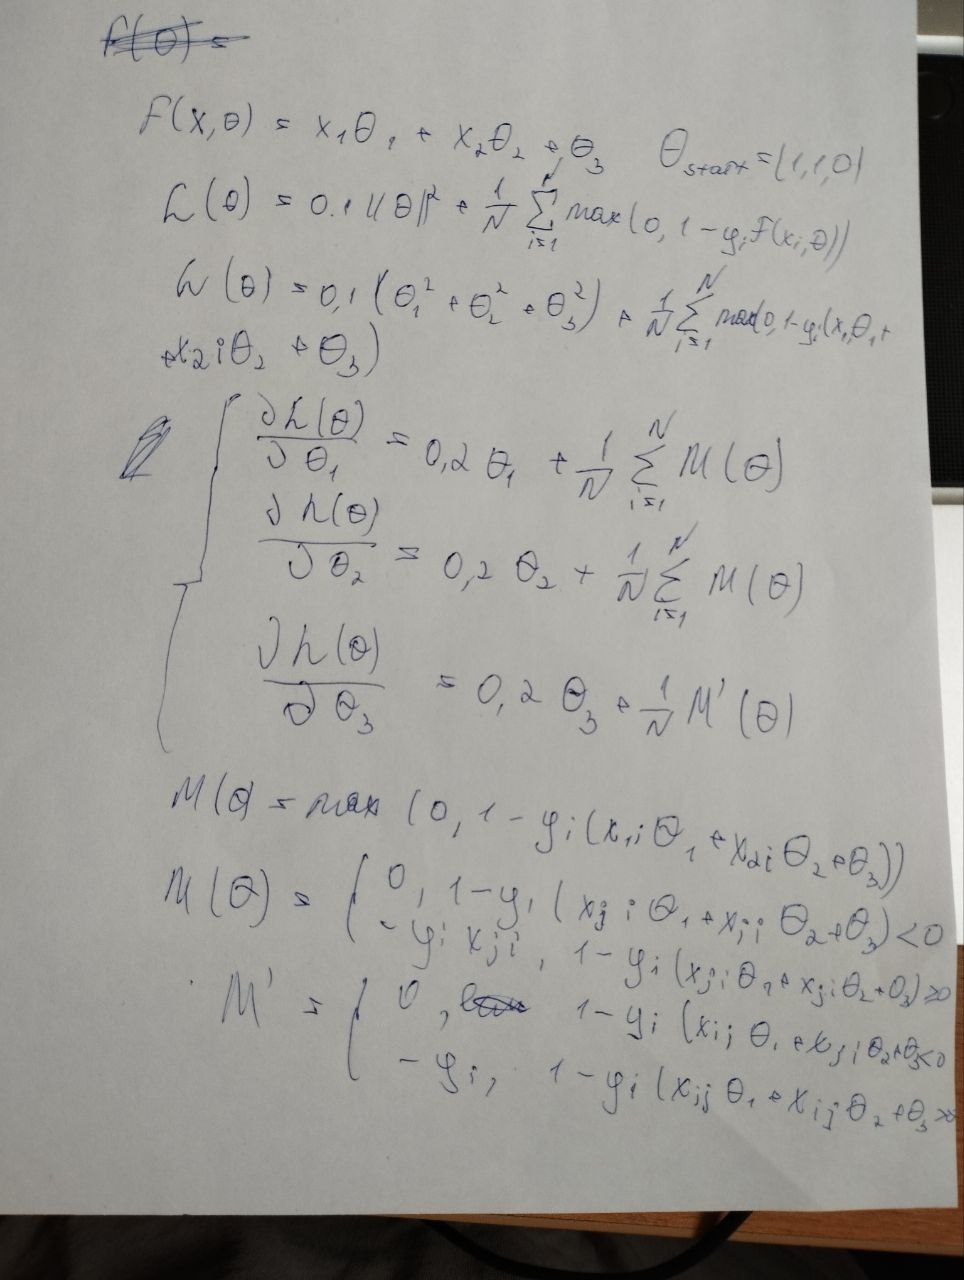 F(θ) =
F(x,θ) = x₁θ₁ + x₂θ₂ + θ₃ θstart = (1,1,0)
L(θ) = 0.1 ||θ||² + 1/N ∑ᵢ₌₁ᴺ max(0, 1 - yᵢF(xᵢ,θ))
L(θ) = 0,1 (θ₁² + θ₂² + θ₃²) + 1/N ∑ᵢ₌₁ᴺ max(0, 1 - yᵢ(x₁ᵢθ₁ +
+x₂ᵢθ₂ + θ₃)
∂L(θ)/∂θ₁ = 0,2 θ₁ + 1/N ∑ᵢ₌₁ᴺ M(θ)
∂L(θ)/∂θ₂ = 0,2 θ₂ + 1/N ∑ᵢ₌₁ᴺ M(θ)
∂L(θ)/∂θ₃ = 0,2 θ₃ + 1/N M'(θ)
M(θ) = max (0, 1 - yᵢ(x₁ᵢθ₁ + x₂ᵢθ₂ + θ₃))
M(θ) = { 0, 1 - yᵢ (xⱼᵢθ₁ + xⱼᵢθ₂ + θ₃) < 0
- yᵢ xⱼᵢ, 1 - yᵢ (xⱼᵢθ₁ + xⱼᵢθ₂ + θ₃) ≥ 0
M' = { 0, 1 - yᵢ (xᵢⱼθ₁ + xⱼᵢθ₂ + θ₃ < 0
- yᵢ, 1 - yᵢ (xᵢⱼθ₁ + xᵢⱼθ₂ + θ₃ ≥